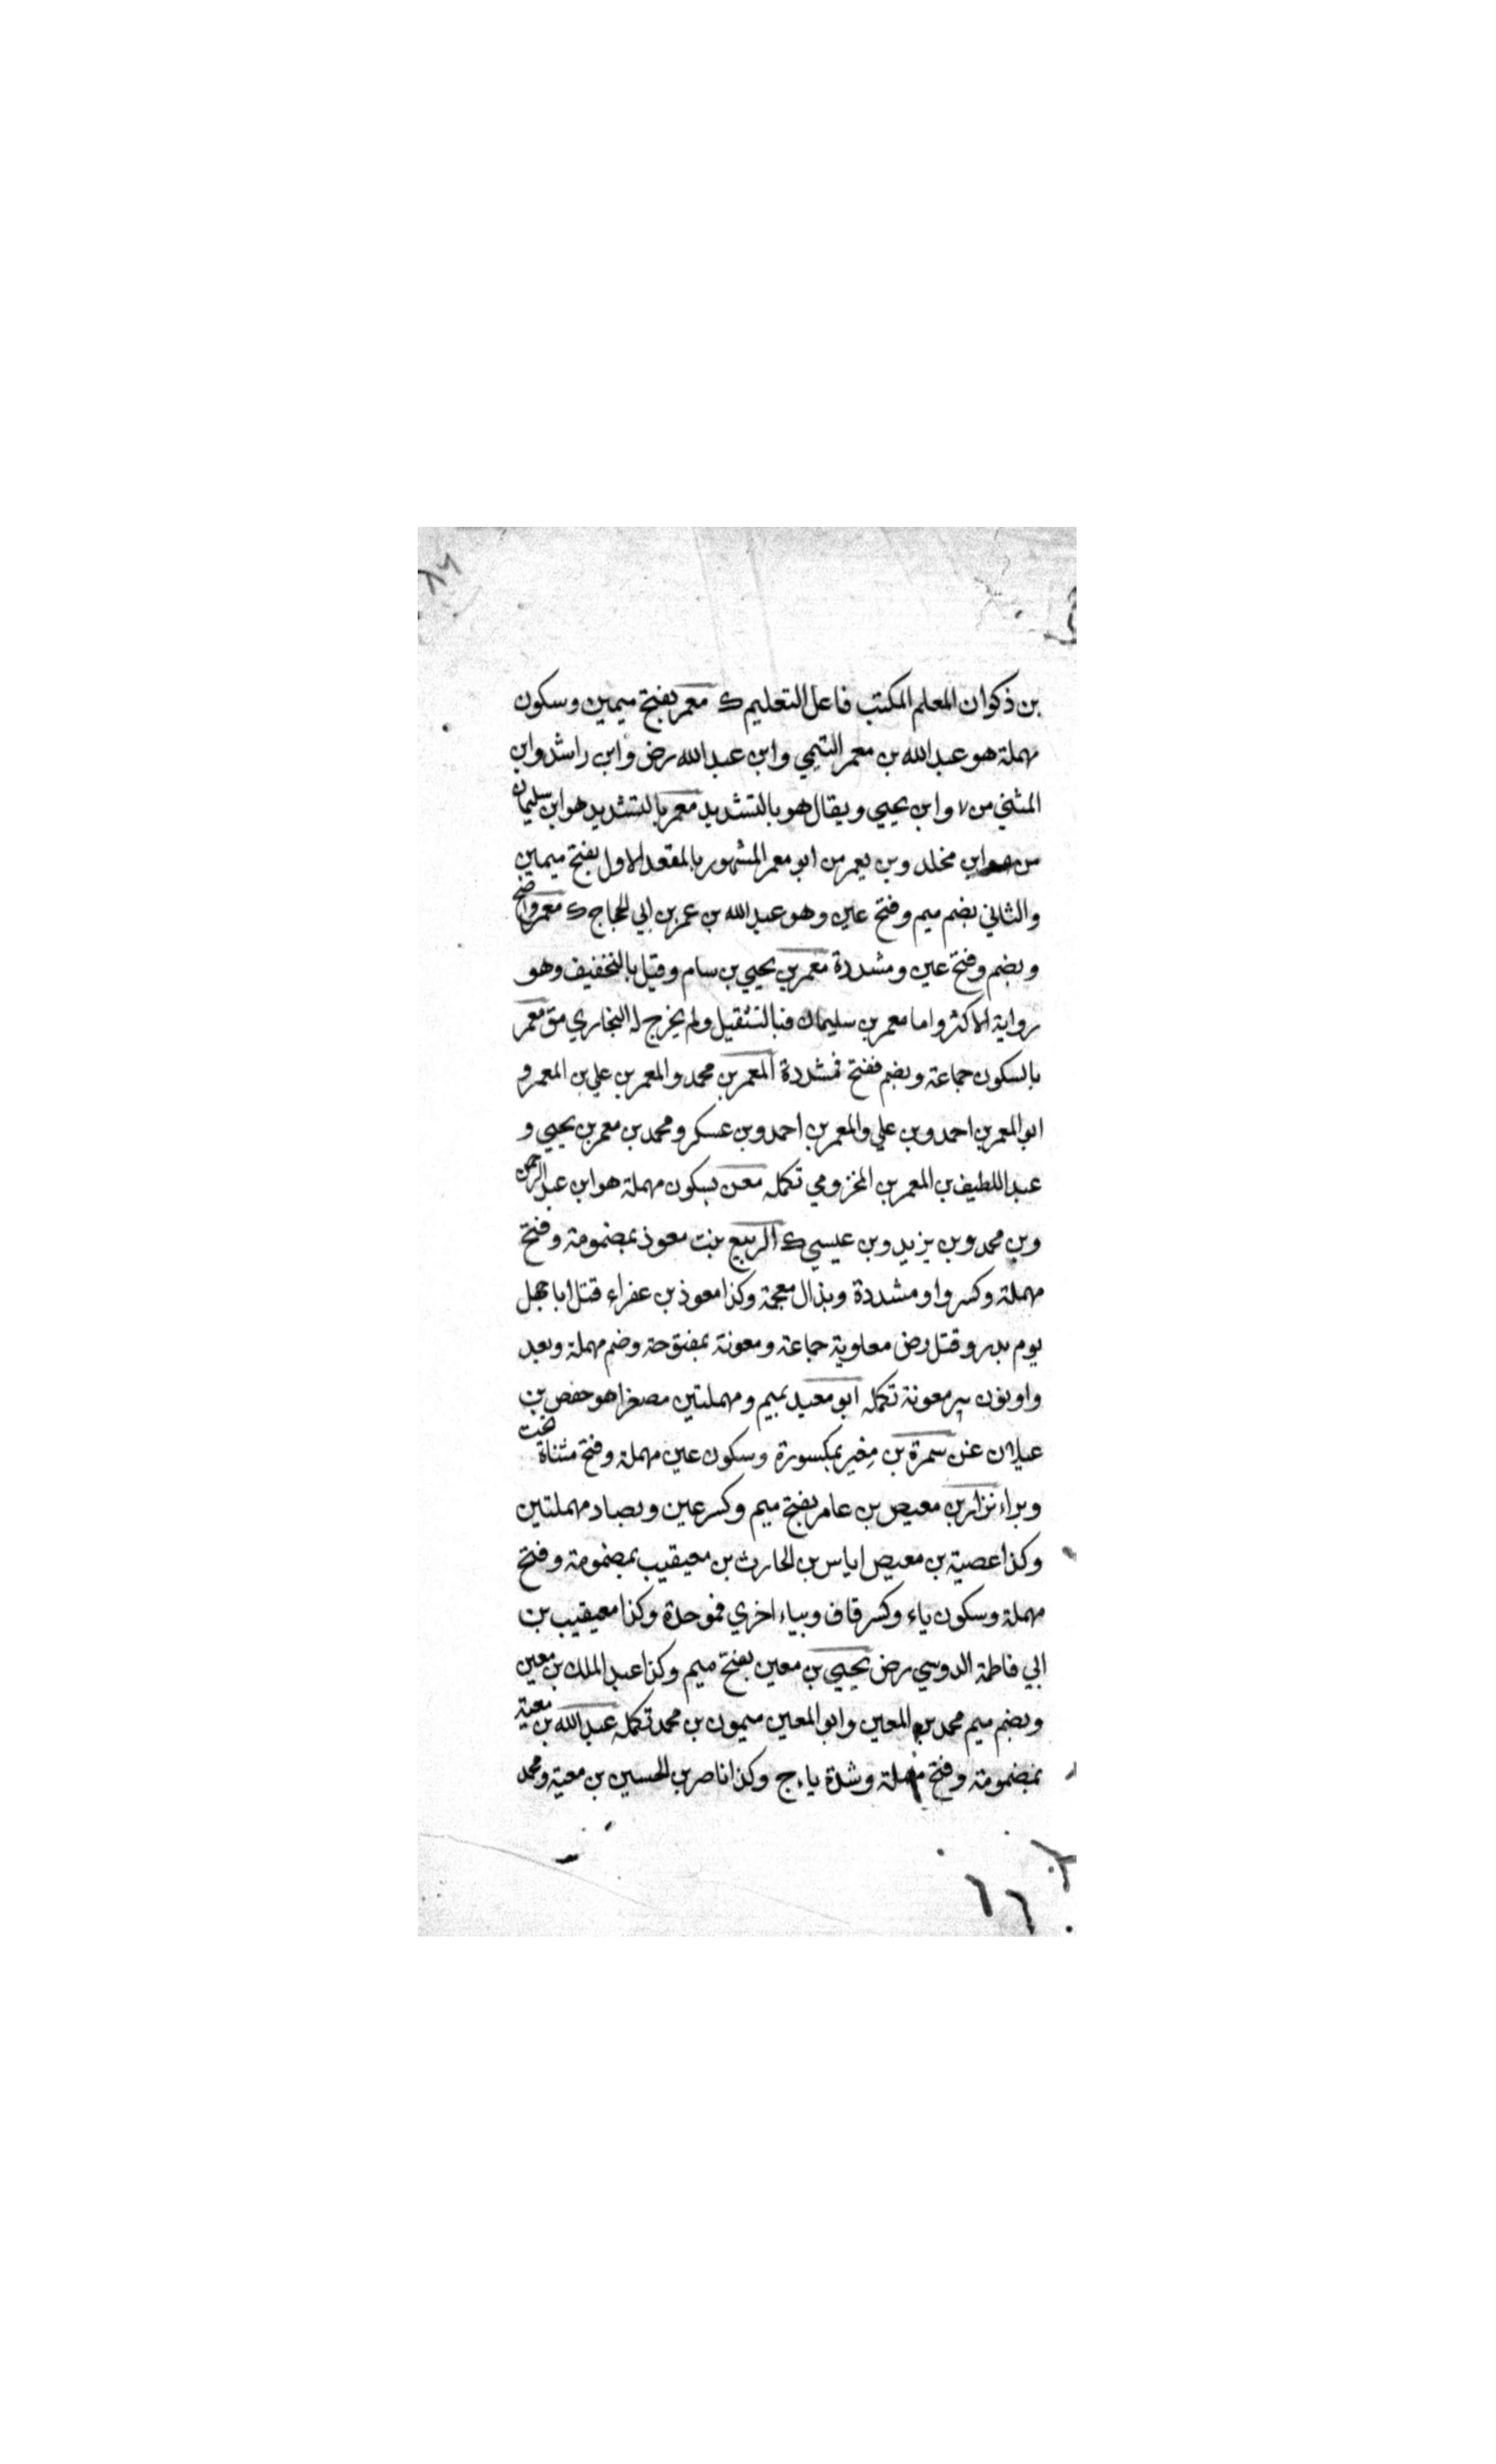 بن ذكوان المعلم المكتب فاعل التعليم ك معمر بفتح ميمين وسكون
مهملة هو عبد الله بن معمر التيمي وابن عبد الله رض وابن راشد وابن
المثني من لا وابن يحيي ويقال هو بالتشديد معمر بالتشديد هو ابن سليمان
من ابن مخلد وبن يعمر من ابو معمر المشهور بالمقعد الاول بفتح ميمين
والثاني بضم ميم وفتح عين وهو عبد الله بن عمر بن ابي الحجاج ك معمر
وبضم وفتح عين ومشددة معمر بن يحيي بن سام وقيل بالتخفيف وهو
رواية الاكثر واما معمر بن سليمان فبالتثقيل ولم يخرج له البخاري مق معمر
بالسكون جماعة وبضم ففتح فمشددة المعمر بن محمد والمعمر بن علي بن المعمر و
ابو المعمر بن احمد وبن علي والمعمر بن احمد وبن عسكر ومحمد بن معمر بن يحيي و
عبد اللطيف بن المعمر بن المخزومي تكمله معن بسكون مهملة هو ابن عبد الرحمن
وبن محمد وبن يزيد وبن عيسي ك الربيع بنت معوذ بمضمومة وفتح
مهملة وكسر واو مشددة وبذال معجمة وكذا معوذ بن عفراء قتل ابا جهل
يوم بدر وقتل رض معاوية جماعة ومعونة بمفتوحة وضم مهملة وبعد
واو نون بير معونة تكمله ابو معيد بميم ومهملتين مصغرا هو حفص بن
غيلان غن سمرة بن مِعْير بمكسورة وسكون عين مهملة وفتح مثناة تحت
وبراء نزار بن معيص بن عامر بفتح ميم وكسر عين وبصاد مهملتين
وكذا عصية بن معيص اياس بن الحارث بن معيقيب بمضمومة وفتح
مهملة وسكون ياء وكسر قاف وبياء اخري فموحدة وكذا معيقيب بن
ابي فاطمة الدوسي رض يحيي بن معين بفتح ميم وكذا عبد الملك بن معين
وبضم ميم محمد بن المعين وابو المعين ميمون بن محمد تكمله عبد الله بن معية
بمضمومة وفتح مهملة وشدة ياء ج وكذا ناصر بن الحسين بن معية ومحمد